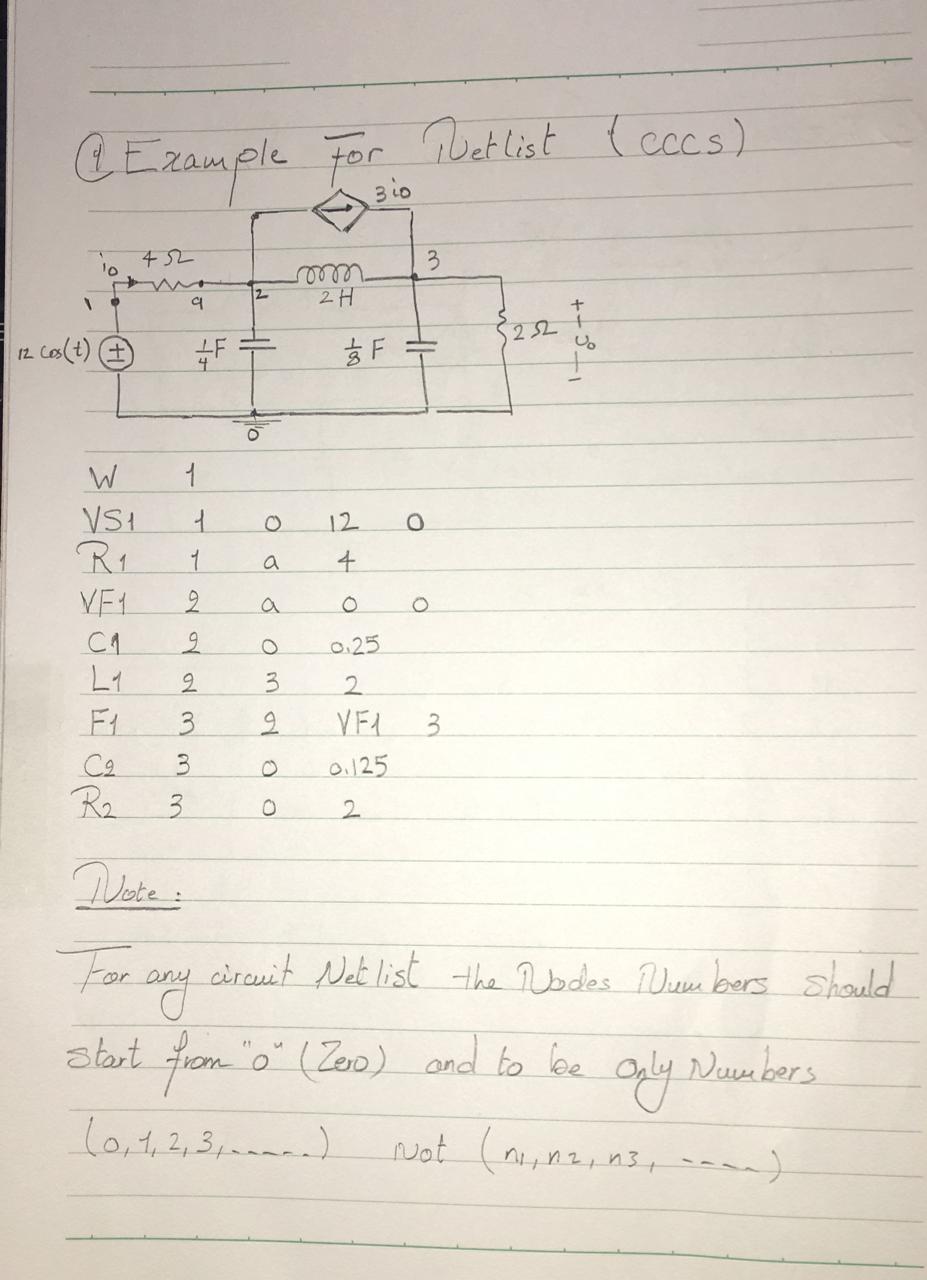 ① Example For Netlist (CCCS)
3io
io 4Ω 3
1 a 2 2H
12 cos(t) ± 1/4 F 1/8 F 2Ω + vo -
0
W 1
VS1 1 0 12 0
R1 1 a 4
VF1 2 a 0 0
C1 2 0 0.25
L1 2 3 2
F1 3 2 VF1 3
C2 3 0 0.125
R2 3 0 2
Note :
For any circuit Netlist the Nodes Numbers should
start from "0" (Zero) and to be Only Numbers
(0, 1, 2, 3, ------) Not (n1, n2, n3, ----)